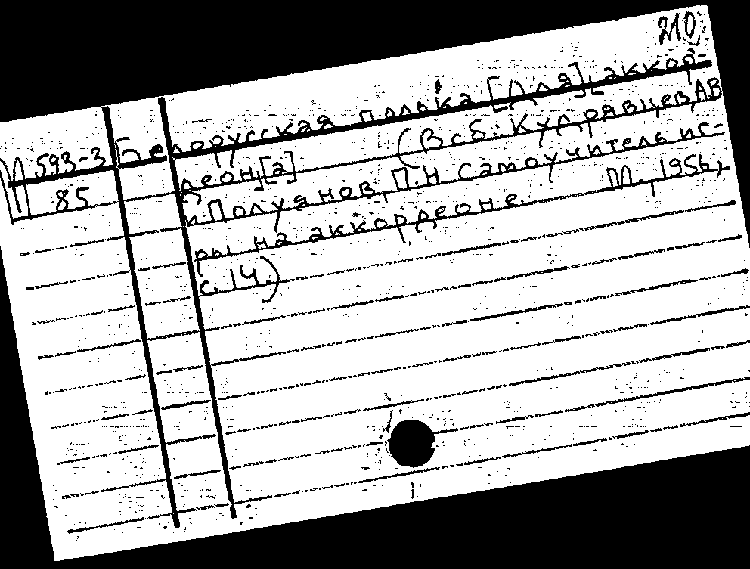 210
Белорусская полька [для] аккор-
М 593-3
85
деон[а] (В сб.: Кудрявцев, А.В.
и Полуянов, П.Н. Самоучитель иг-
ры на аккордеоне. М., 1956,
с. 14.)